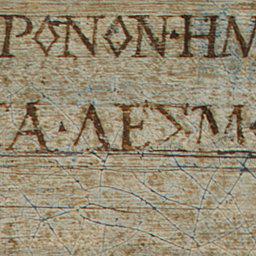 ΡΟΝΟΝ·ΗΜ
ΤΑ·ΛΕΣΜ